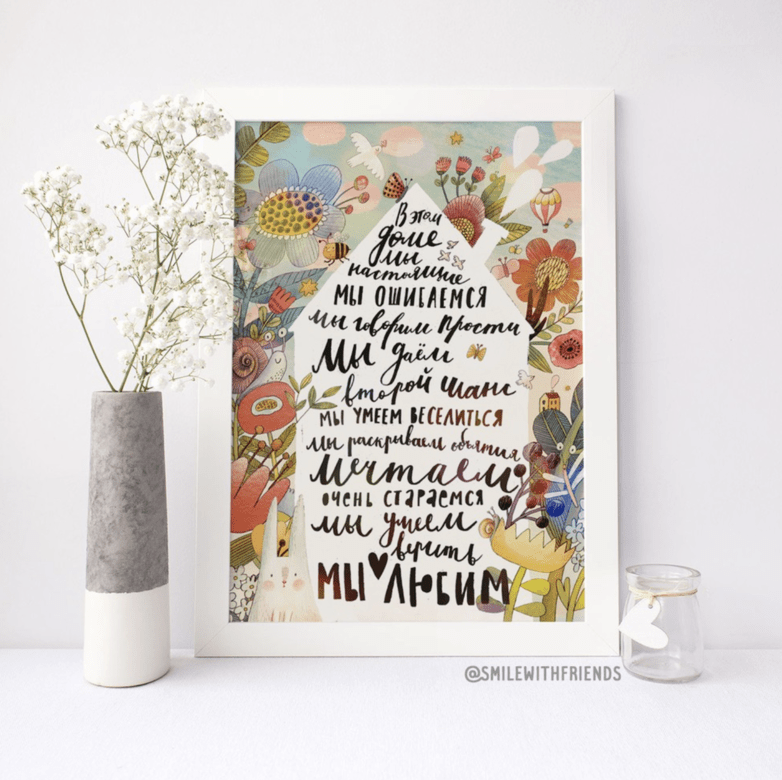 В этом
доме
мы
настоящие
МЫ ОШИБАЕМСЯ
мы говорим прости
мы даём
второй шанс
МЫ УМЕЕМ ВЕСЕЛИТЬСЯ
мы раскрываем объятия
мечтаем
ОЧЕНЬ СТАРАЕМСЯ
мы умеем
верить
МЫ ЛЮБИМ
@SMILEWITHFRIENDS